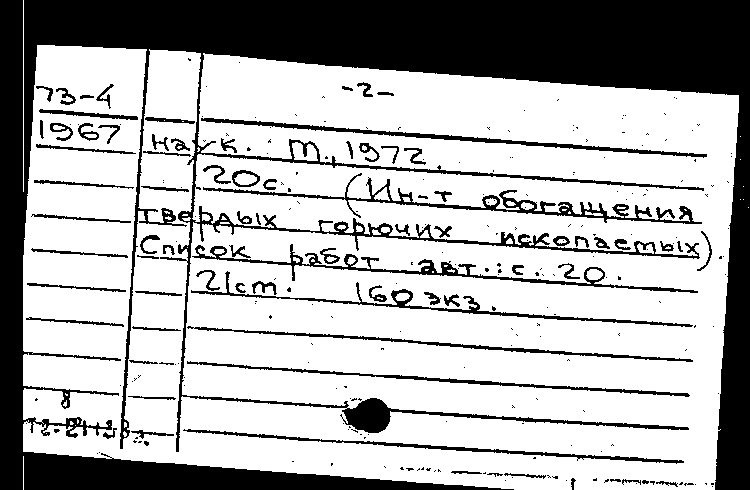 -2-
73-4
1967
наук. М., 1972.
20с. (Ин-т обогащения
твердых горючих ископаемых).
Список работ авт.: с. 20.
21см. 160 экз.
8